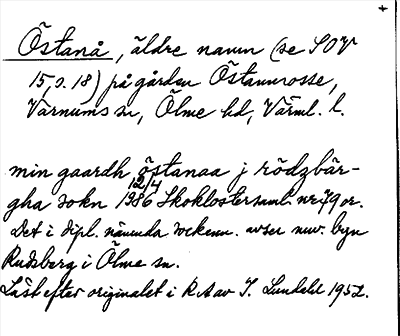 Östanå, äldre namn (se SOV
15, s. 18) på gården Östanmosse,
Varnums sn, Ölme hd, Värml. l.
min gaardh östanaa j rödzbär-
12/4
gha sokn 1986 Skoklostersaml. nr 79 or.
Det i dipl. nämnda sockenn. avser nuv. byn
Rudsberg i Ölme sn.
Läst efter originalet i RA av I. Lundahl 1952.